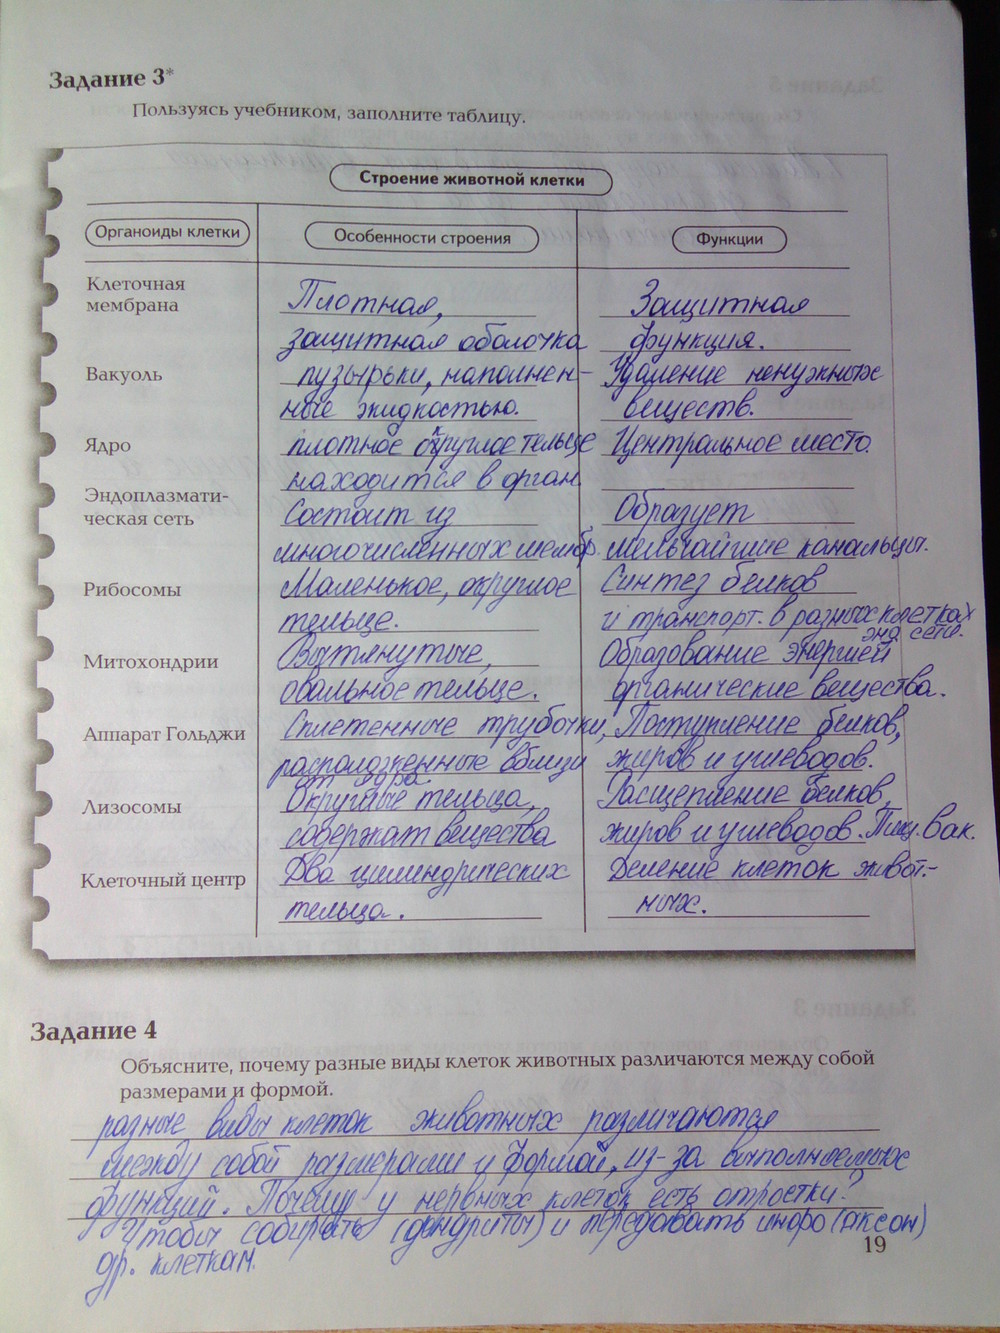 Задание 3*
Пользуясь учебником, заполните таблицу.
Строение животной клетки
Органоиды клетки Особенности строения Функции
Клеточная
мембрана Плотная, Защитная
защитная оболочка функция.
Вакуоль пузырьки, наполнен- Удаление ненужных
ные жидкостью. веществ.
Ядро плотное округлое тельце Центральное место.
находится в орган
Эндоплазмати-
ческая сеть Состоит из Образует
многочисленных мембр. мельчайшие канальцы.
Рибосомы Маленькое, округлое Синтез белков
тельце. и транспорт. в разных клетках
энд сети.
Митохондрии Вытянутые, Образование энергией
овальное тельце. органические вещества.
Аппарат Гольджи Сплетенные трубочки, Поступление белков,
расположенные вблизи жиров и углеводов.
от ядра.
Лизосомы Округлые тельца, Расщепление белков,
содержат вещества жиров и углеводов. Пищ. вак.
Клеточный центр Два цилиндрических Деление клеток живот-
тельца. ных.
Задание 4
Объясните, почему разные виды клеток животных различаются между собой
размерами и формой.
разные виды клеток животных различаются
между собой размерами и формой, из-за выполняемых
функций. Почему у нервных клеток есть отростки?
Чтобы собирать (дендриты) и передавать инфо (аксон)
др. клеткам.
19